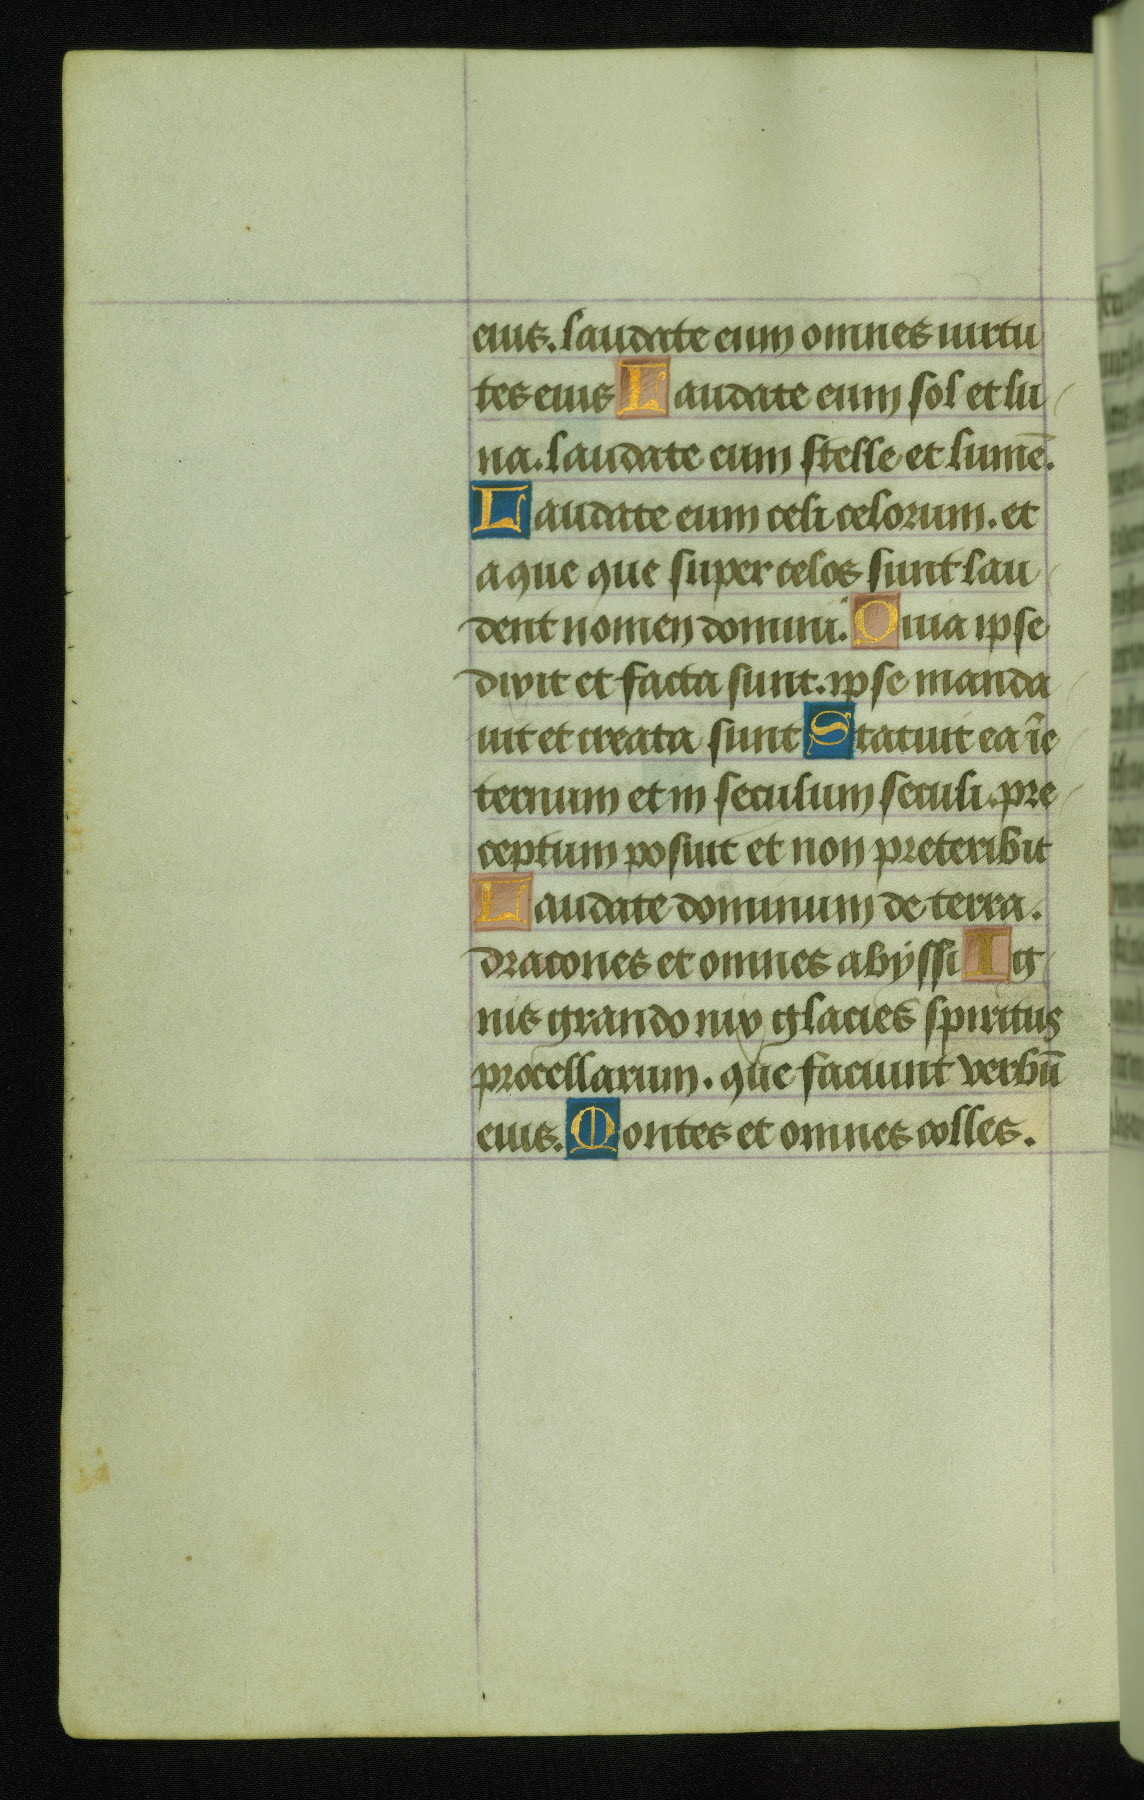 eius. laudate eum omnes uirtu
tes eius Laudate eum sol et lu
na. laudate eum stelle et lumē.
Laudate eum celi celorum. et
aque que super celos sunt lau
dent nomen domini. Quia ipse
dixit et facta sunt. ipse manda
uit et creata sunt Statuit ea ī e
ternum et in seculum seculi. pre
ceptum posuit et non preteribit
Laudate dominum de terra.
dracones et omnes abyssi Ig
nis grando nix glacies spiritus
procellarum. que faciunt verbū
eius. Montes et omnes colles.